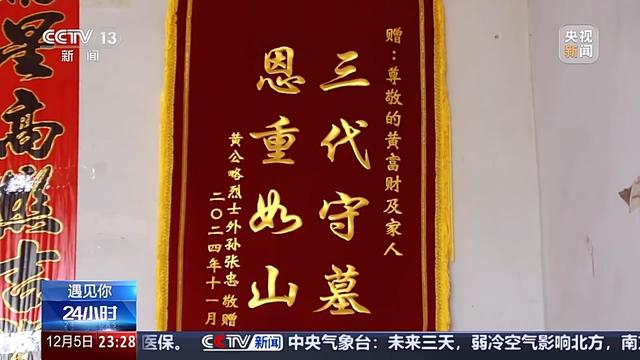 CCTV 13
新闻
央视
新闻
星高照吉
赠：尊敬的黄富财及家人
三代守墓
恩重如山
黄公略烈士外孙张忠 敬赠
二〇二四年十一月
遇见你
24小时
12月5日 23:28
医保。 CCTV 新闻 中央气象台：未来三天，弱冷空气影响北方，南